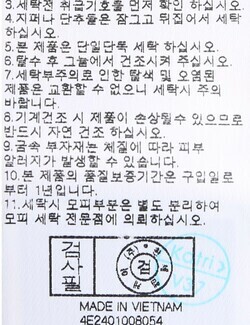 3.세탁전 취급기호를 먼저 확인 하십시오.
4.지퍼나 단추들은 잠그고 뒤집어서 세탁
하십시오.
5.본 제품은 단일단독 세탁 하십시오.
6.탈수 후 그늘에서 건조시켜 주십시오.
7.세탁부주의로 인한 탈색 및 오염된
제품은 교환할 수 없으니 세탁시 주의
바랍니다.
8.기계건조 시 제품이 손상될수 있으므로
반드시 자연 건조 하십시오.
9.금속 부자재는 체질에 따라 피부
알러지가 발생할 수 있습니다.
10.본 제품의 품질보증기간은 구입일로
부터 1년입니다.
11.세탁시 모피부분은 별도 분리하여
모피 세탁 전문점에 의뢰하십시오.
검사필
(주)
검
Kotri
V37
MADE IN VIETNAM
4E2401008054